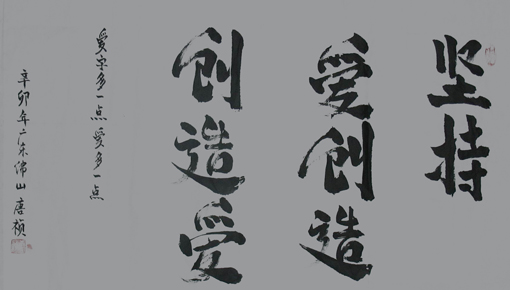 坚持
愛创造
创造爱
爱字多一点 爱多一点
辛卯年广东佛山 唐桢